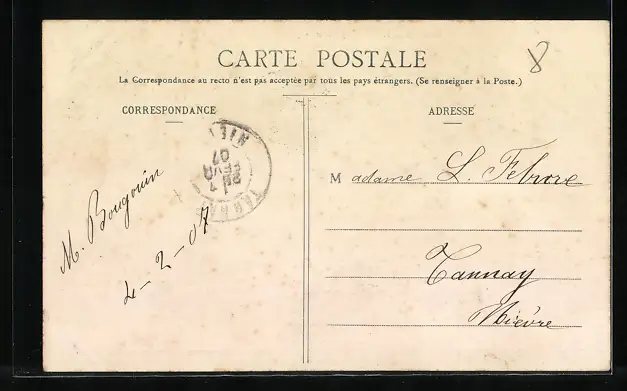 8
CARTE POSTALE
La Correspondance au recto n'est pas acceptée par tous les pays étrangers. (Se renseigner à la Poste.)
CORRESPONDANCE
M. Bougouin
4-2-07
ADRESSE
Madame L. Febvre
Tannay
Nièvre
07